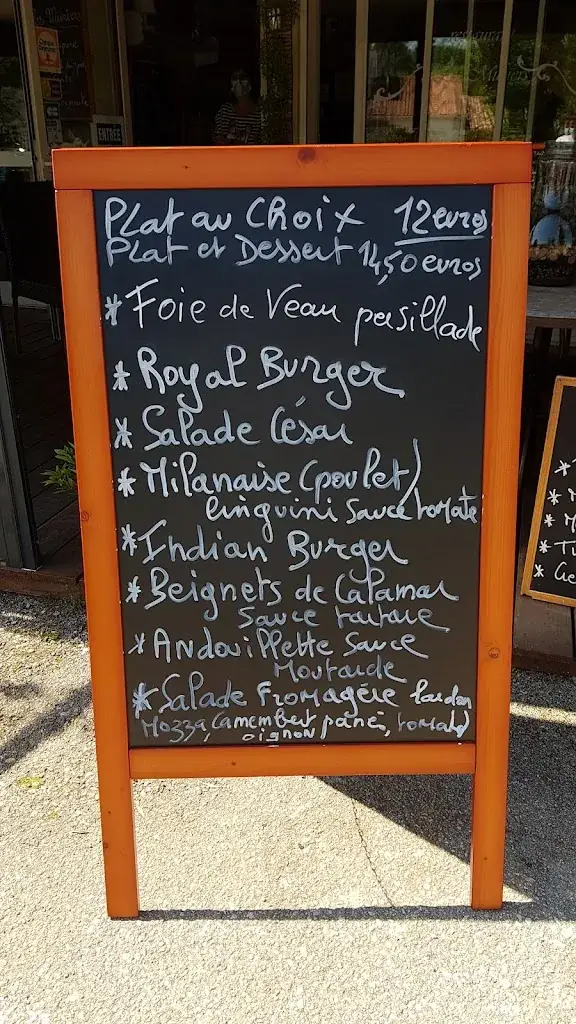 ENTRÉE
Plat au Choix 12 euros
Plat et Dessert 14,50 euros
* Foie de Veau persillade
* Royal Burger
* Salade César
* Milanaise (poulet)
linguini sauce tomate
* Indian Burger
* Beignets de Calamar
Sauce tartare
* Andouillette Sauce
Moutarde
* Salade Fromagère (lardon
Mozza, Camembert pané, tomate)
oignon